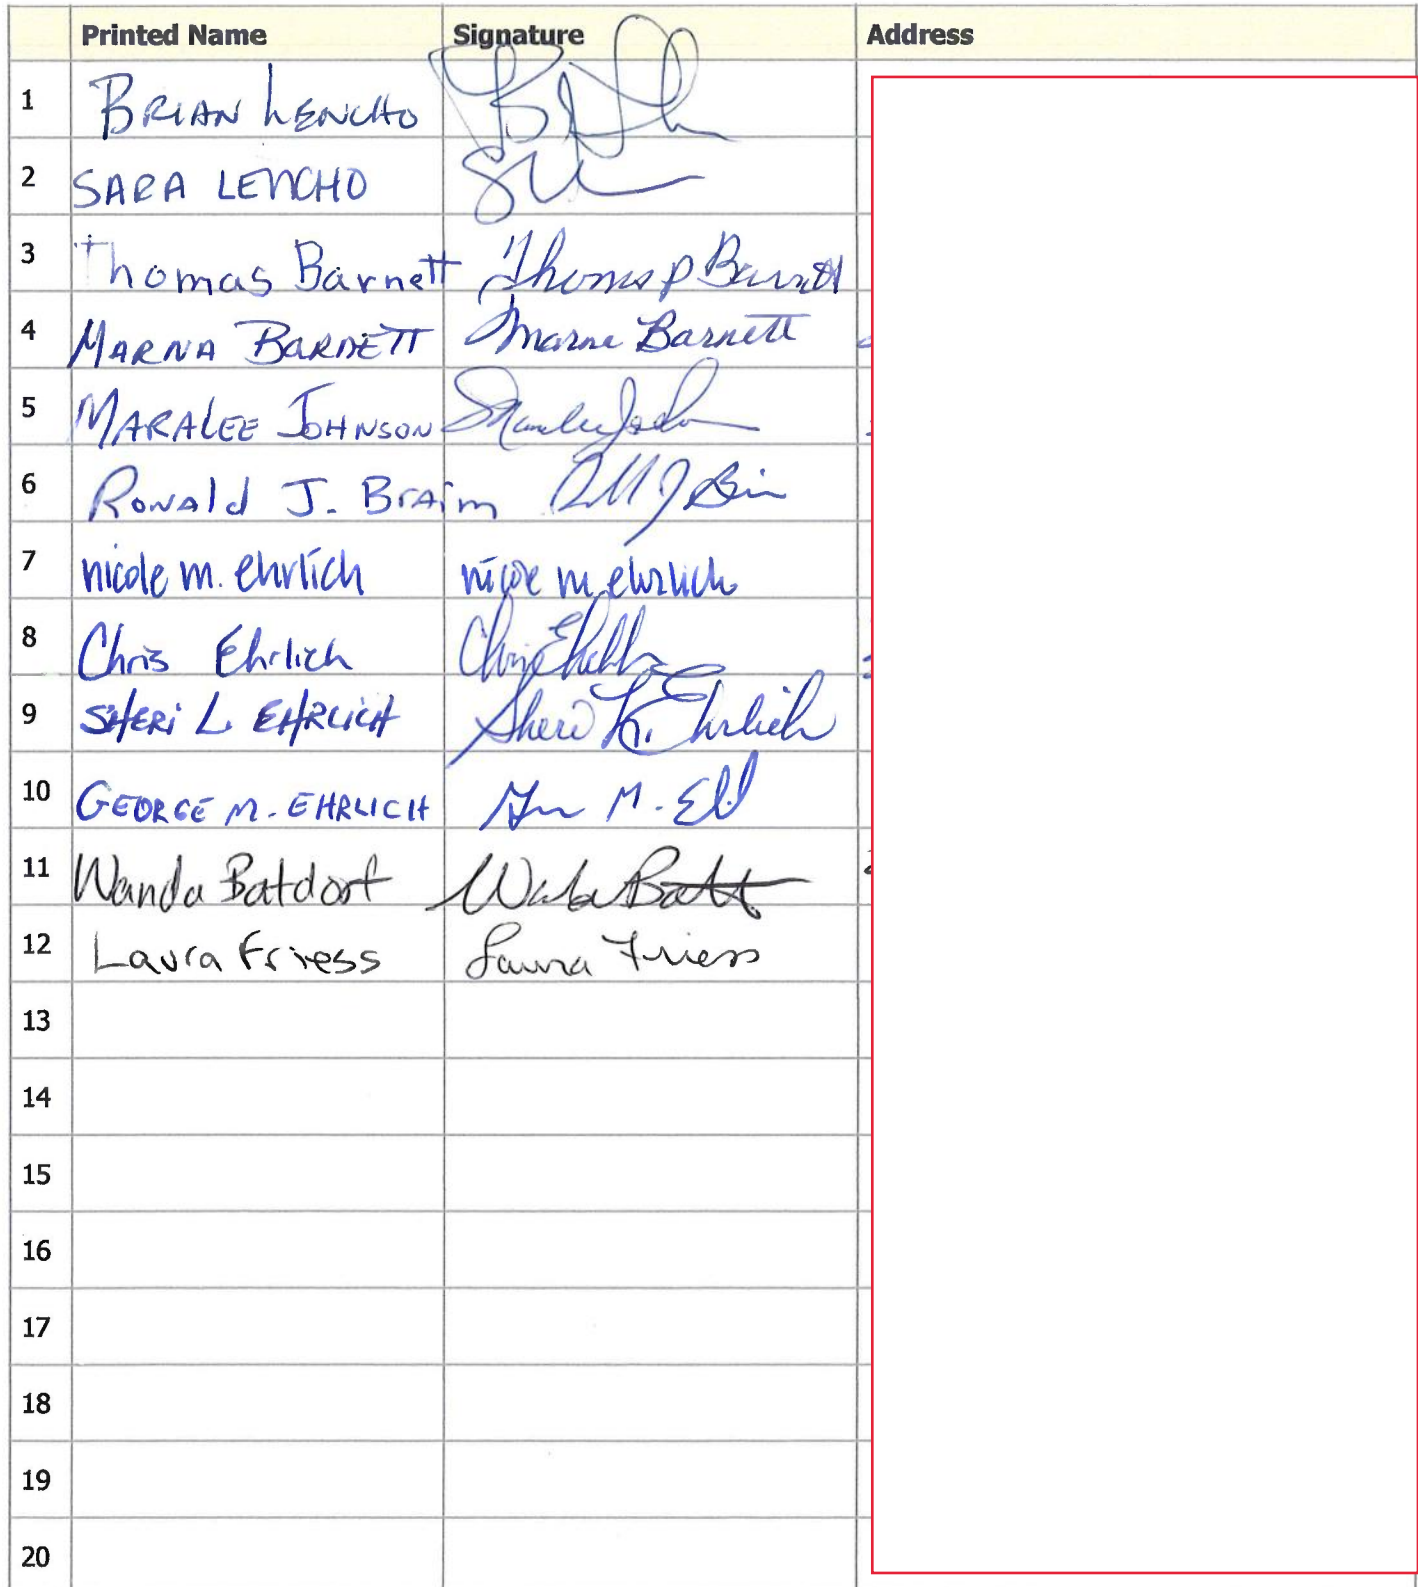 Printed Name Signature Address
1 BRIAN LENCHO
2 SARA LENCHO
3 Thomas Barnett Thomas P Barnett
4 MARNA BARNETT Marna Barnett
5 MARALEE JOHNSON
6 RONALd J. BrAim
7 nicole m. ehrlich nicole m. ehrlich
8 Chris Ehrlich
9 SHERi L EHRLICH Sheri L. Ehrlich
10 GEORGE M. EHRLICH
11 Wanda Batdorf
12 Laura Friess Laura Friess
13
14
15
16
17
18
19
20